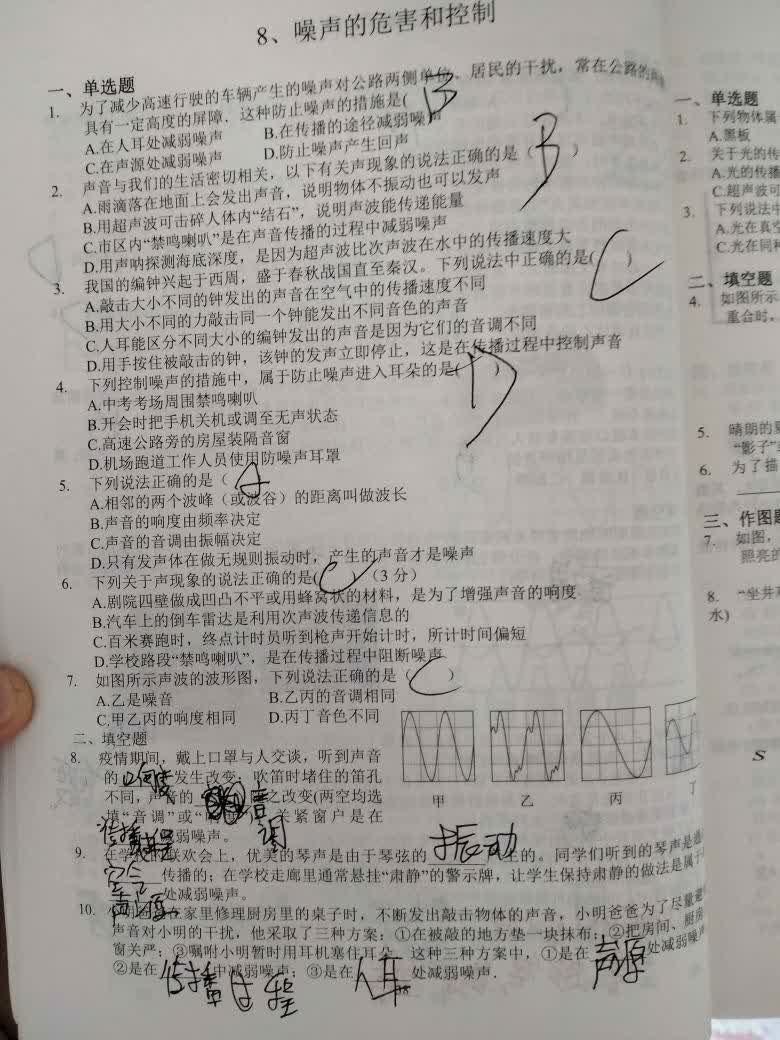 8、噪声的危害和控制
一、单选题
1. 为了减少高速行驶的车辆产生的噪声对公路两侧单位、居民的干扰，常在公路的
具有一定高度的屏障．这种防止噪声的措施是( B
A.在人耳处减弱噪声 B.在传播的途径减弱噪声
C.在声源处减弱噪声 D.防止噪声产生回声
2. 声音与我们的生活密切相关，以下有关声现象的说法正确的是（ B ）
A.雨滴落在地面上会发出声音，说明物体不振动也可以发声
B.用超声波可击碎人体内“结石”，说明声波能传递能量
C.市区内“禁鸣喇叭”是在声音传播的过程中减弱噪声
D.用声呐探测海底深度，是因为超声波比次声波在水中的传播速度大
3. 我国的编钟兴起于西周，盛于春秋战国直至秦汉。下列说法中正确的是( C )
A.敲击大小不同的钟发出的声音在空气中的传播速度不同
B.用大小不同的力敲击同一个钟能发出不同音色的声音
C.人耳能区分不同大小的编钟发出的声音是因为它们的音调不同
D.用手按住被敲击的钟，该钟的发声立即停止，这是在传播过程中控制声音
4. 下列控制噪声的措施中，属于防止噪声进入耳朵的是( D )
A.中考考场周围禁鸣喇叭
B.开会时把手机关机或调至无声状态
C.高速公路旁的房屋装隔音窗
D.机场跑道工作人员使用防噪声耳罩
5. 下列说法正确的是（ A
A.相邻的两个波峰（或波谷）的距离叫做波长
B.声音的响度由频率决定
C.声音的音调由振幅决定
D.只有发声体在做无规则振动时，产生的声音才是噪声
6. 下列关于声现象的说法正确的是( C )（3 分）
A.剧院四壁做成凹凸不平或用蜂窝状的材料，是为了增强声音的响度
B.汽车上的倒车雷达是利用次声波传递信息的
C.百米赛跑时，终点计时员听到枪声开始计时，所计时间偏短
D.学校路段“禁鸣喇叭”，是在传播过程中阻断噪声
7. 如图所示声波的波形图，下列说法正确的是（ C ）
A.乙是噪音 B.乙丙的音调相同
C.甲乙丙的响度相同 D.丙丁音色不同
甲 乙 丙 丁
二、填空题
8. 疫情期间，戴上口罩与人交谈，听到声音
的 响度 发生改变；吹笛时堵住的笛孔
不同，声音的 音调 之改变(两空均选
填“音调”或“ 关紧窗户是在
减弱噪声。
9. 在学校的联欢会上，优美的琴声是由于琴弦的 振动 生的。同学们听到的琴声是通
空气 传播的；在学校走廊里通常悬挂“肃静”的警示牌，让学生保持肃静的做法是属于
声源 处减弱噪声。
10. 家里修理厨房里的桌子时，不断发出敲击物体的声音，小明爸爸为了尽量避
声音对小明的干扰，他采取了三种方案：①在被敲的地方垫一块抹布；②把房间、厨房
窗关严；③嘱咐小明暂时用耳机塞住耳朵 这种三种方案中，①是在 声源 处减弱噪声
②是在 传播过程 中减弱噪声；③是在 人耳 处减弱噪声．
一、单选题
1. 下列物体属
A.黑板
2. 关于光的传
A.光的传播
C.超声波可
3. 下列说法中
A.光在真空
C.光在同种
二、填空题
4. 如图所示
重合时。
5. 晴朗的夏
“影子”
6. 为了描
三、作图题
7. 如图，
照亮的
8. “坐井观
水)
S